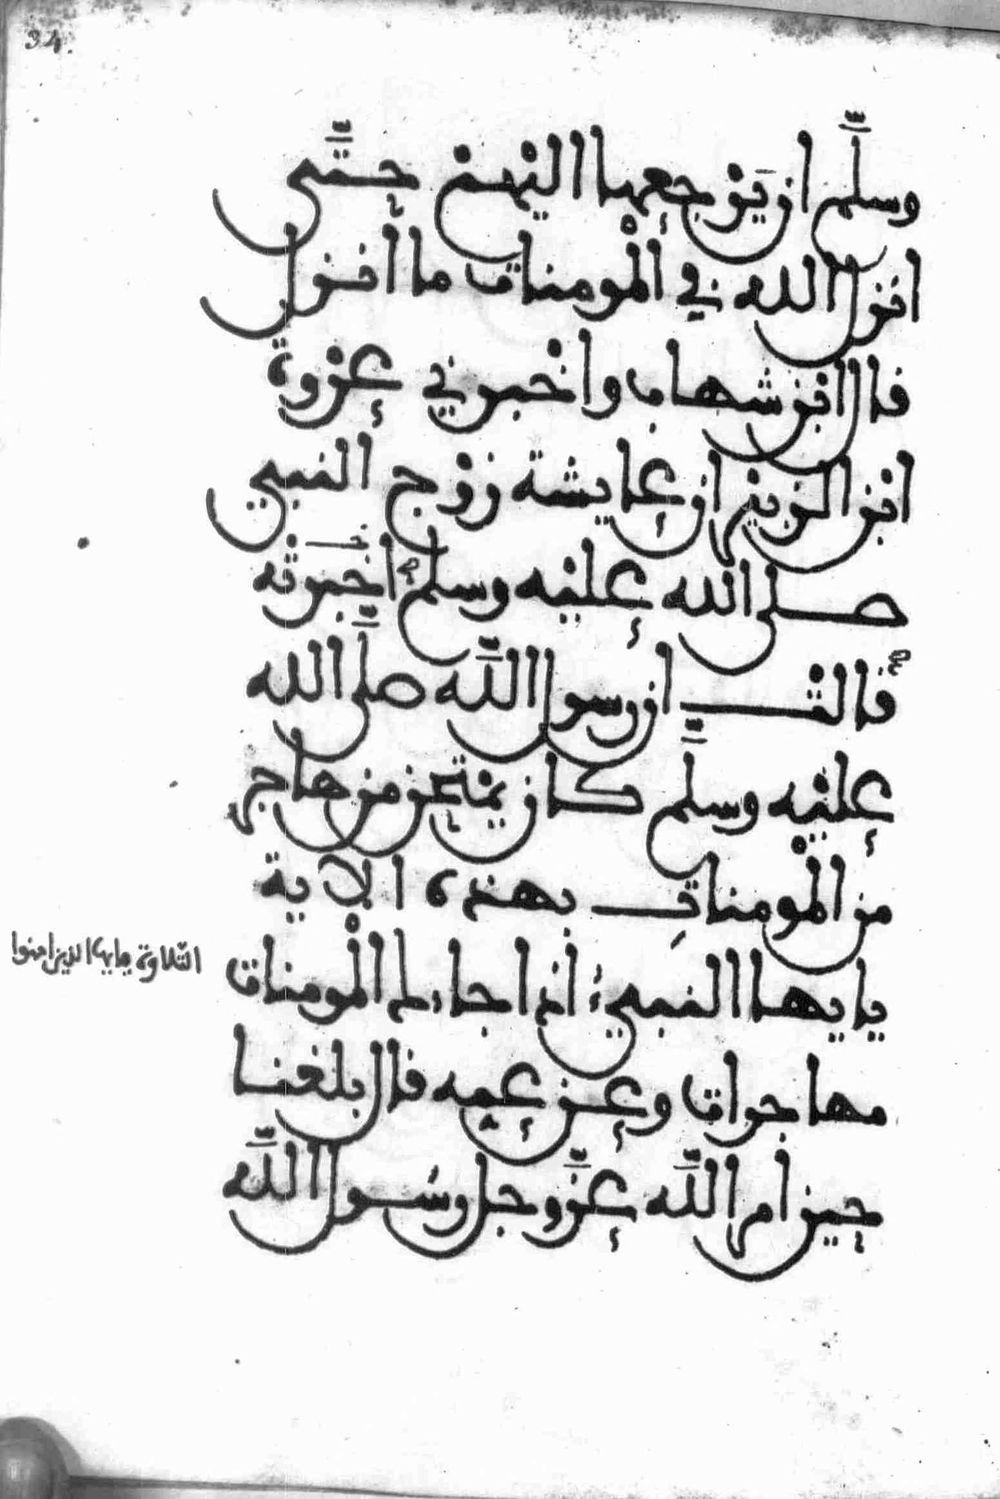 34.
وسلم ان يرجعها اليهم حتى
انزل الله في المومنات ما انزل
قال ابن شهاب واخبرني عروة
ابن الزبير ان عايشة زوج النبي
صلى الله عليه وسلم اخبرته
قالت ان رسول الله صلى الله
عليه وسلم كان يمتحن من هاجر
من المومنات بهذه الاية
يا يها النبي اذا جاءك المومنات
التلاوة يايها الذين امنوا
مهاجرات وعن عمه قال بلغنا
حين امر الله عز وجل رسول الله